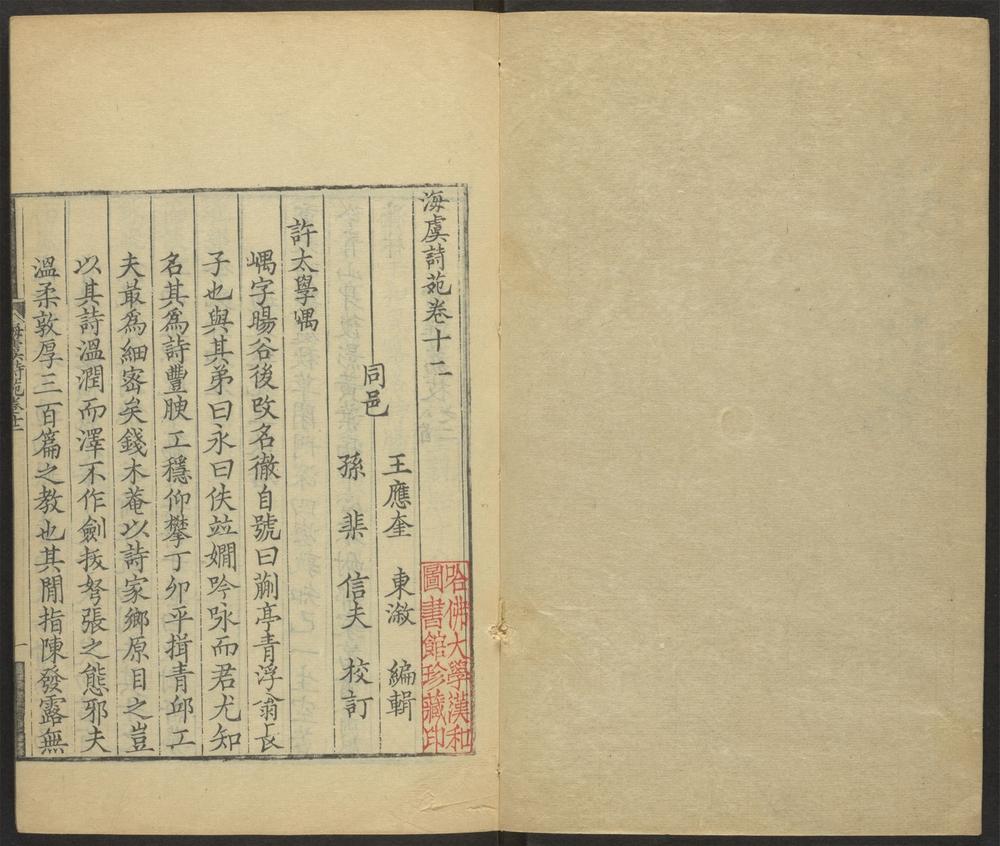 海虞詩苑卷十二
王應奎 東漵 編輯
同邑
孫 棐 信夫 校訂
許太學嵎
嵎字暘谷後攺名徹自號曰蒯亭青浮翁長
子也與其弟曰永曰佚竝嫺吟咏而君尤知
名其為詩豐腴工穩仰攀丁卯平揖青邱工
夫最為細宻矣錢木菴以詩家鄉原目之豈
以其詩溫潤而澤不作劍拔弩張之態邪夫
溫柔敦厚三百篇之教也其閒指陳發露無
海虞詩苑卷十二
一
哈佛大學漢和
圖書館珍藏印